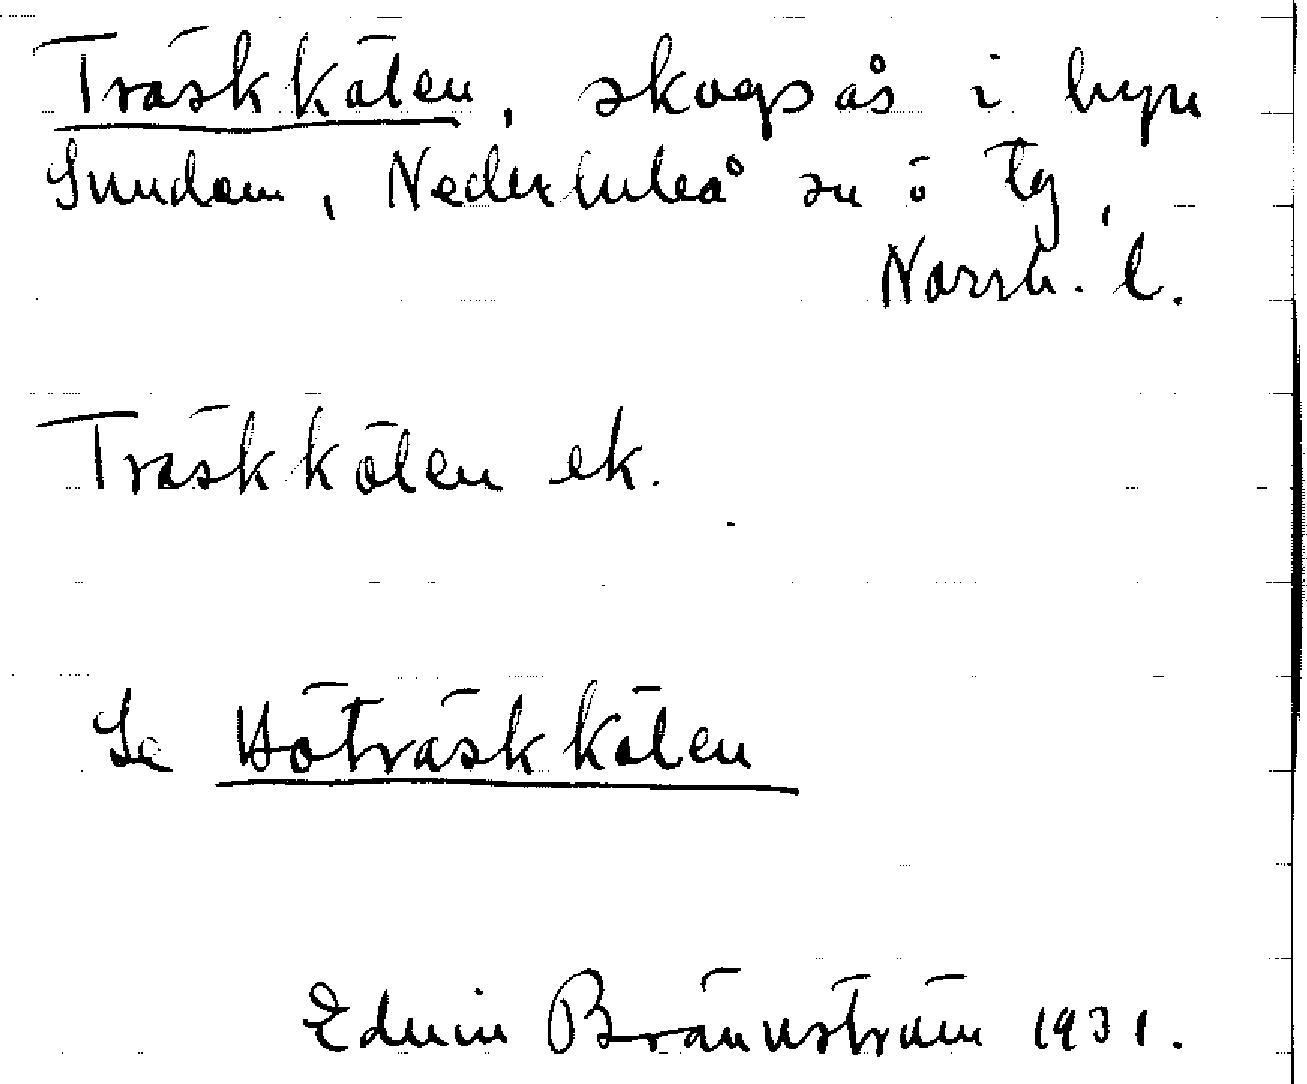 Träskkölen, skogsås i byn
Sundom, Nederluleå sn o tg,
Norrb. l.
Träskkölen ek.
Se Höträskkölen
Edvin Brännström 1931.